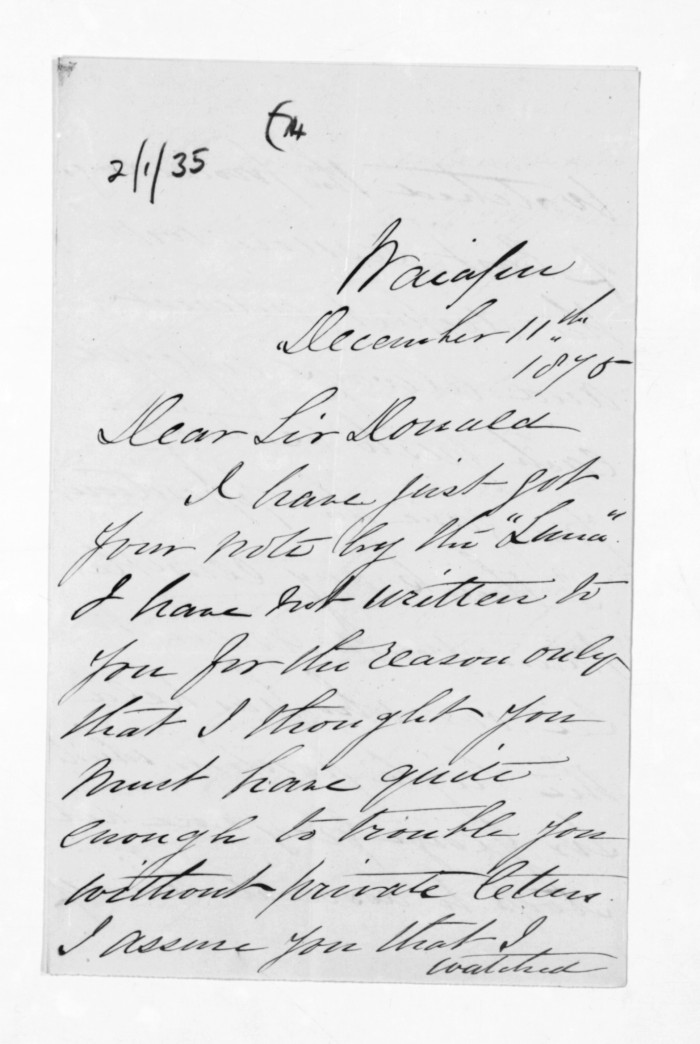 2/1/35
Waiapu
December 11th
1875
Dear Sir Donald
I have just got
your note by the "Luna".
I have not written to
you for the reason only
that I thought you
must have quite
enough to trouble you
without private letters.
I assure you that I
watched